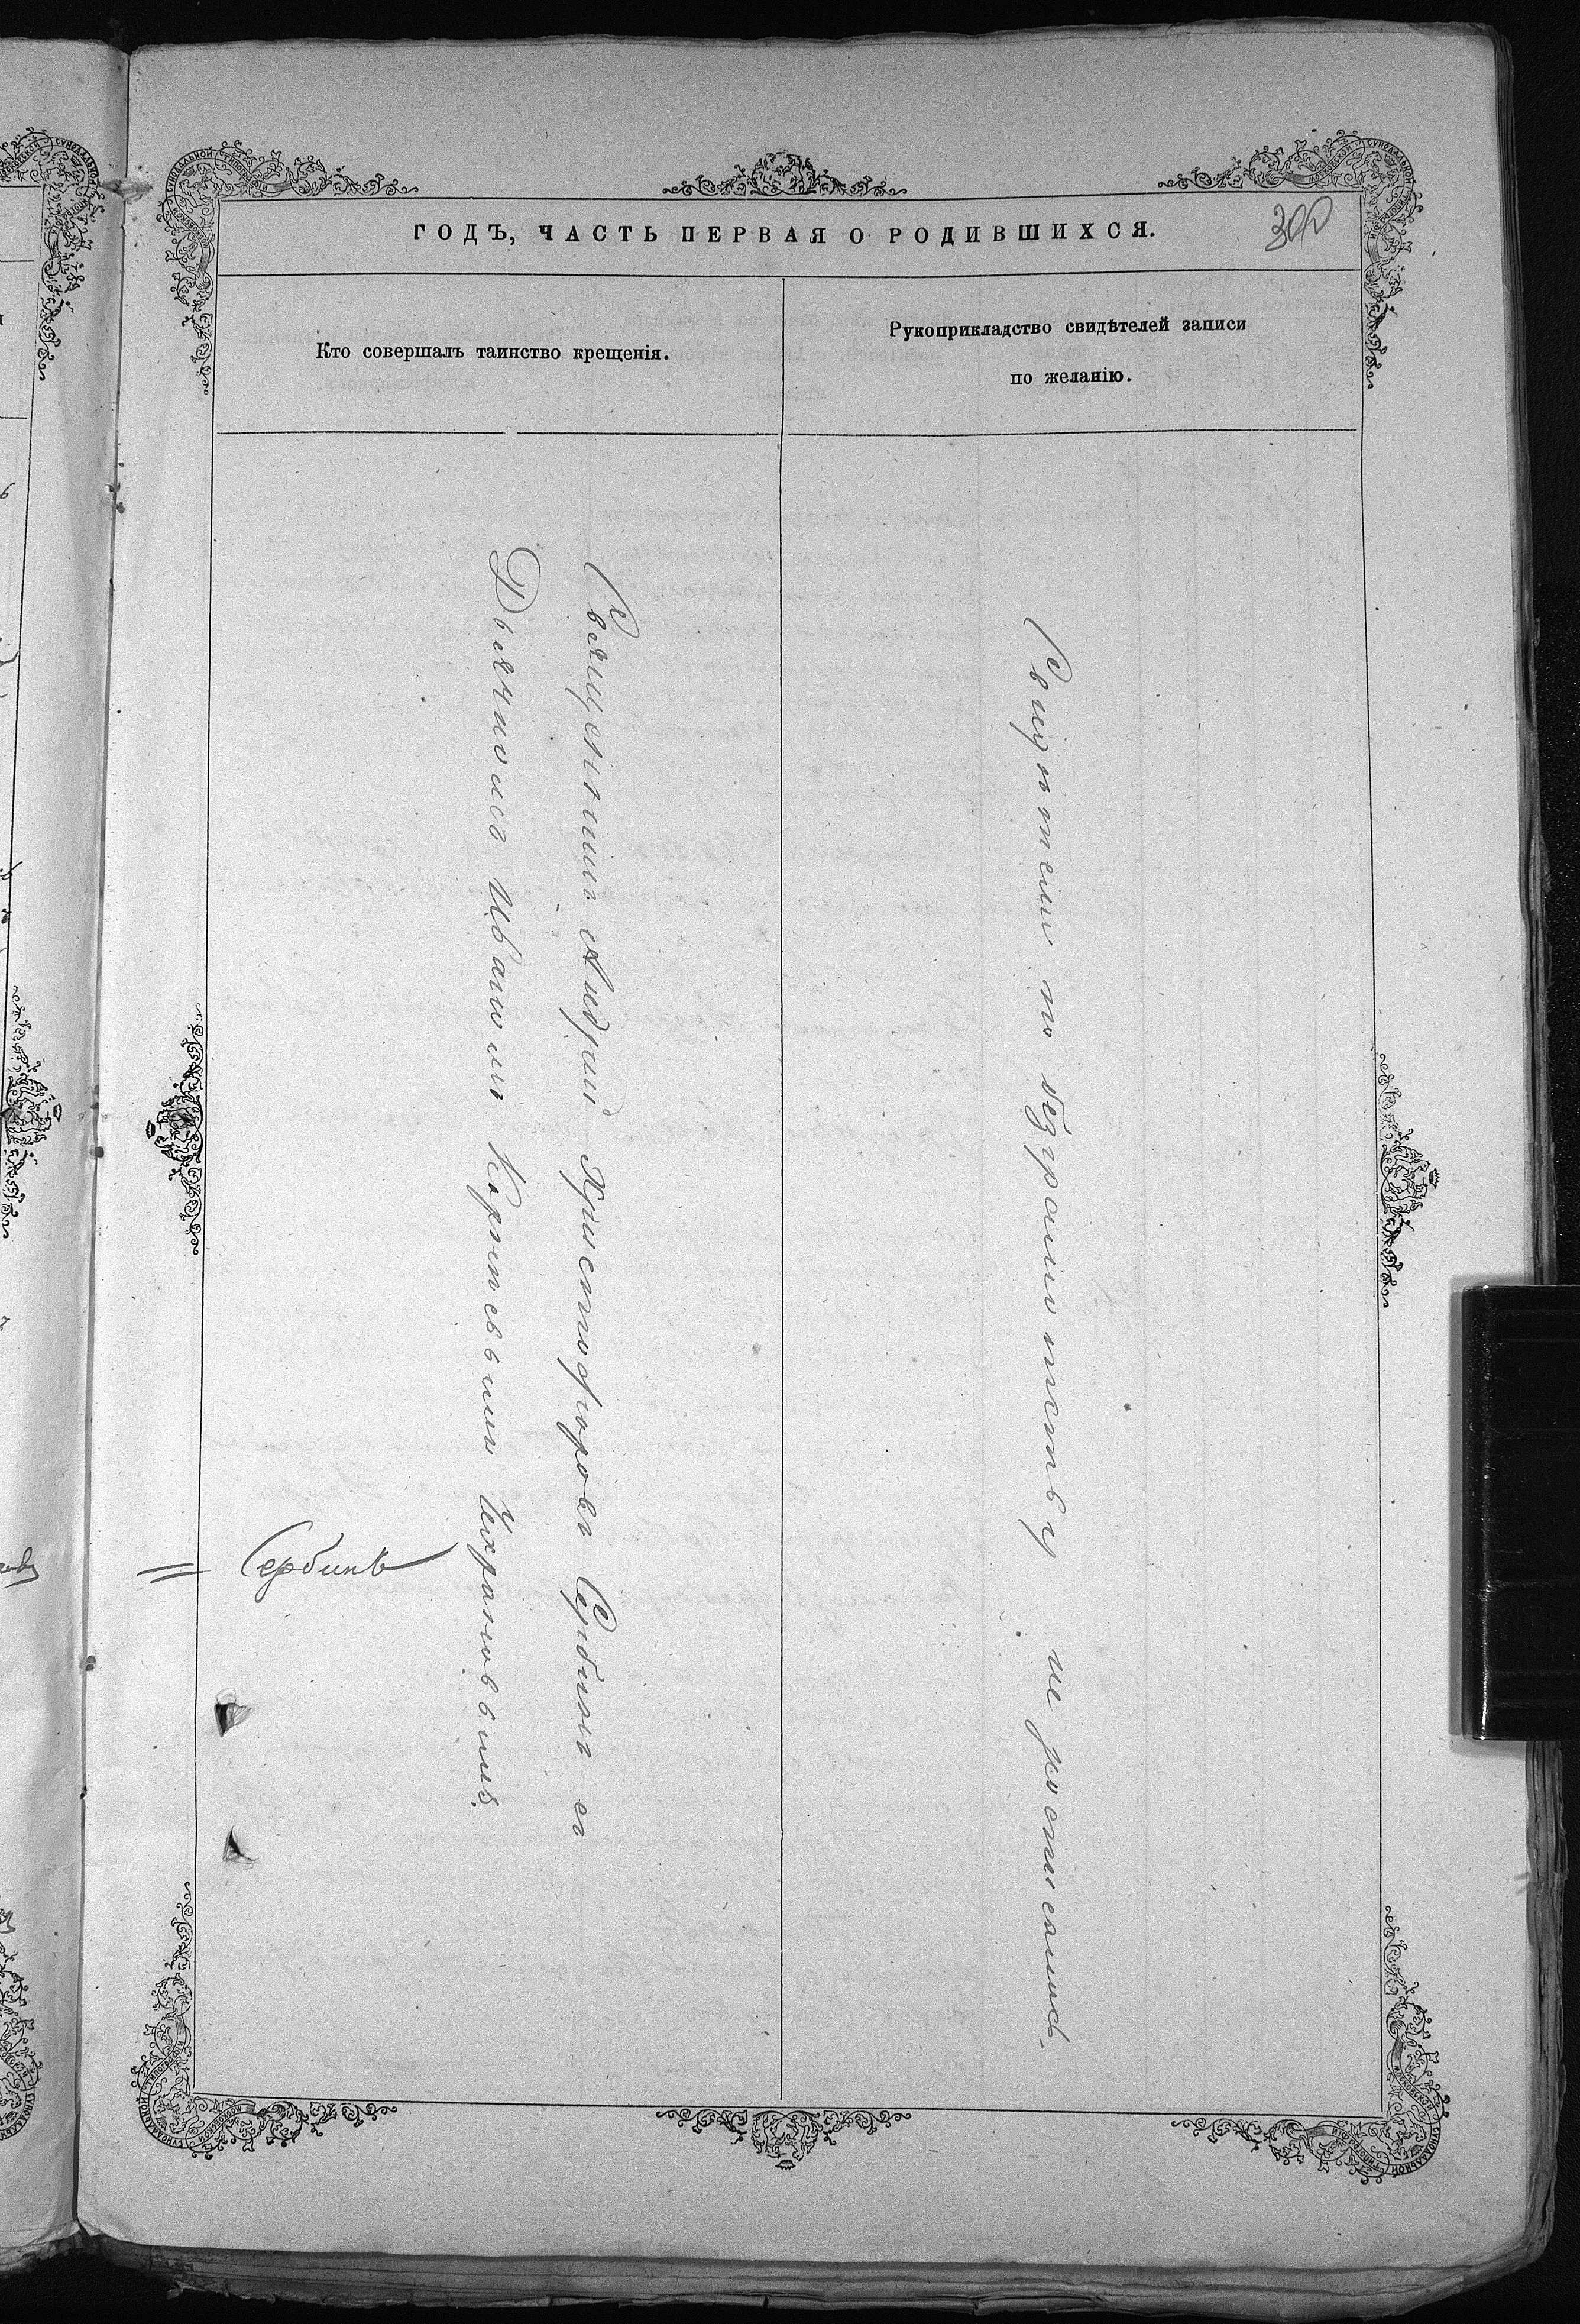 ГОДЪ, ЧАСТЬ ПЕРВАЯ О РОДИВШИХСЯ.
300
Кто совершалъ таинство крещенія.
Рукоприкладство свидѣтелей записи
по желанію.
Священникъ Андрей Христофоровъ Сербинъ съ
Дьячкомъ Иваномъ Корнѣевымъ
Сербинъ
Свидѣтели по безграмотству не росписались.